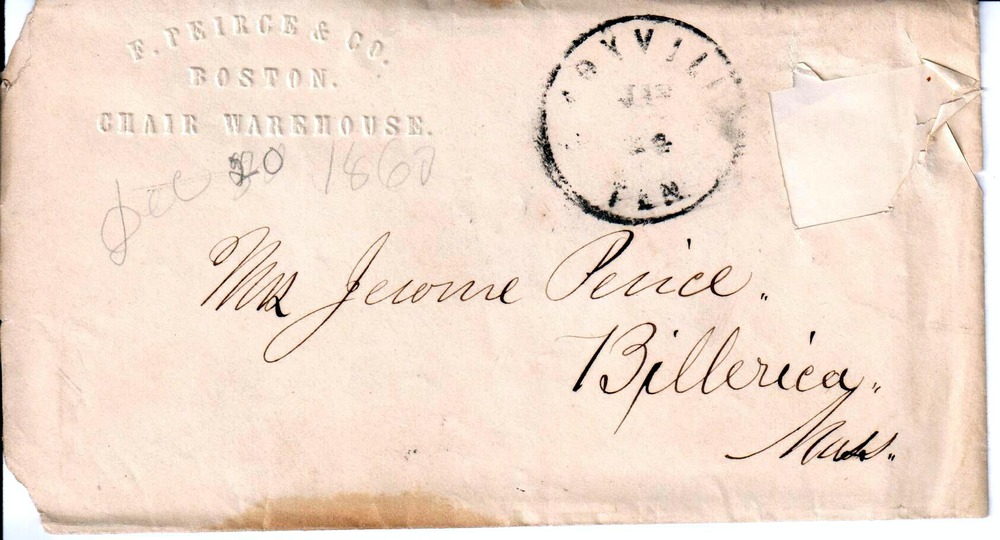 F. PEIRCE & CO.
BOSTON.
CHAIR WAREHOUSE.
Dec 20 1860
24
TEN
Mrs Jerome Peirce.
Billerica.
Mass.